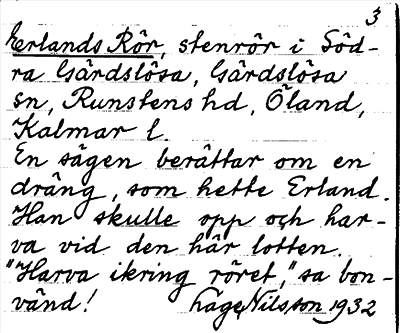 3
Erlands Rör, stenrör i Söd-
ra Gärdslösa, Gärdslösa
sn, Runstens hd, Öland,
Kalmar l.
En sägen berättar om en
dräng, som hette Erland.
Han skulle opp och har-
va vid den här lotten.
"Harva ikring röret," sa bon-
vänd! Nilsson 1932